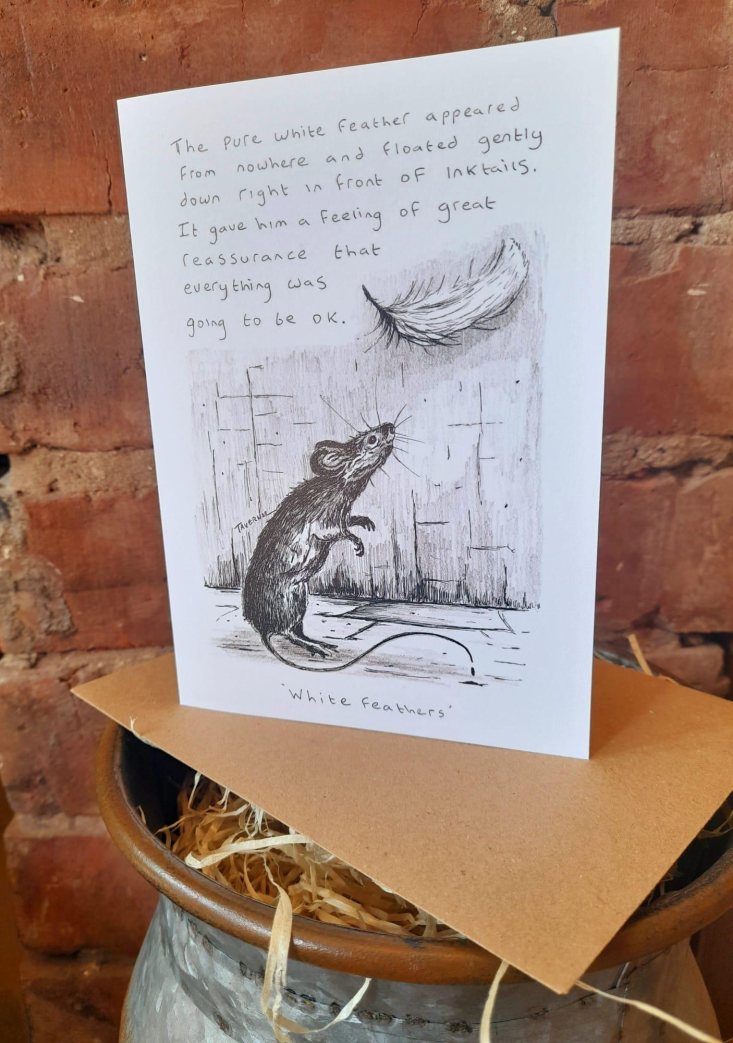 The pure white feather appeared
from nowhere and floated gently
down right in front of Inktails.
It gave him a feeling of great
reassurance that
everything was
going to be ok.
'White feathers'